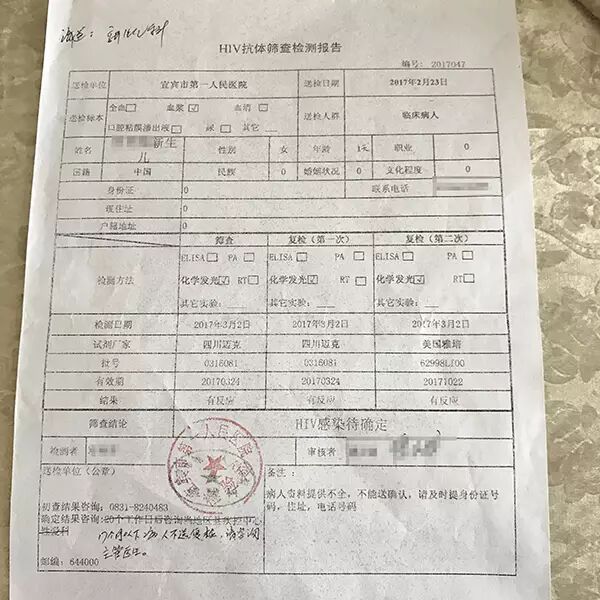 HIV抗体筛查检测报告
编号: 2017047
送检单位 宜宾市第一人民医院 送检日期 2017年2月23日
送检标本 全血 血浆 血清 送检人群 临床病人
口腔粘膜渗出液 尿 其它
姓名 新生儿 性别 女 年龄 1天 职业 0
国籍 中国 民族 0 婚姻状况 0 文化程度 0
身份证 0 联系电话
现住址 0
户籍地址 0
筛查 复检(第一次) 复检(第二次)
检测方法 ELISA PA ELISA PA ELISA PA
化学发光 RT 化学发光 RT 化学发光 RT
其它实验: 其它实验: 其它实验:
检测日期 2017年3月2日 2017年3月2日 2017年3月2日
试剂厂家 四川迈克 四川迈克 美国雅培
批号 0316081 0316081 62998LI00
有效期 20170324 20170324 20171022
结果 有反应 有反应 有反应
筛查结论 HIV感染待确定
检测者 审核者
送检单位(公章) 备注:
病人资料提供不全,不能送确认,请及时提身份证号
码,住址,电话号码
初查结果咨询: 0831-8240483
确定结果咨询:20个工作日后咨询当地区县疾控中心
性病科
人不送复检,请咨询
主管医生。
邮编: 644000